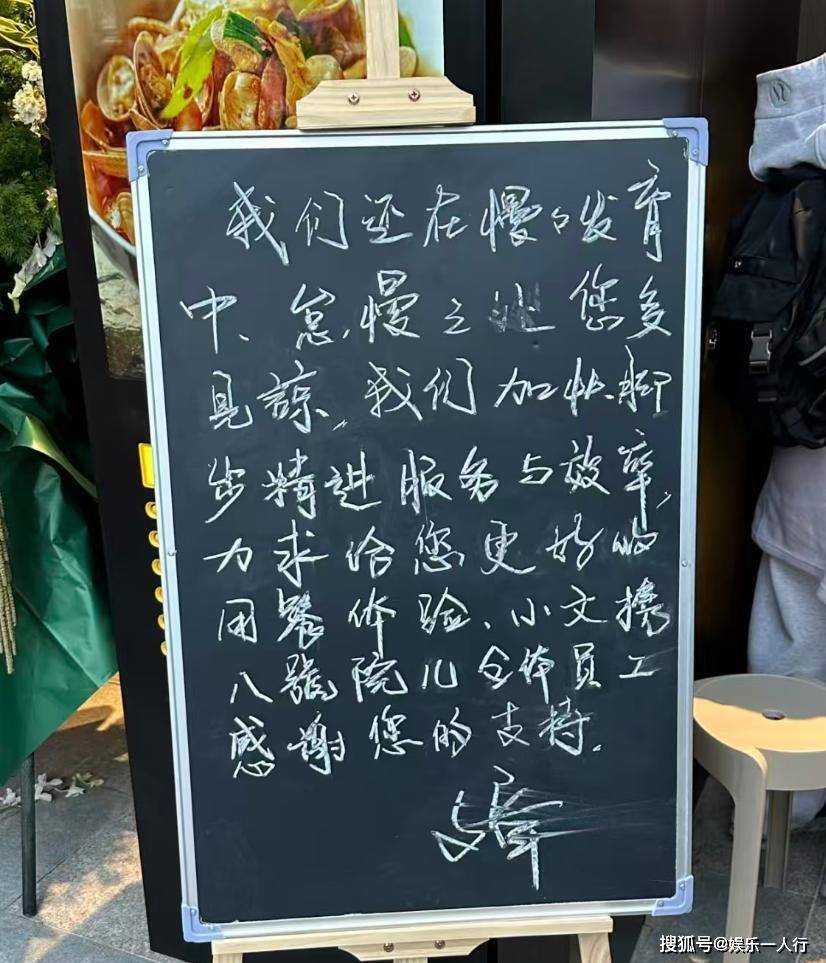 我们还在慢々发育
中、怠慢之处您多
见谅、我们加快脚
步精进服务与效率,
力求给您更好的
用餐体验、小文携
八號院儿全体员工
感谢您的支持.
搜狐号@娱乐一人行